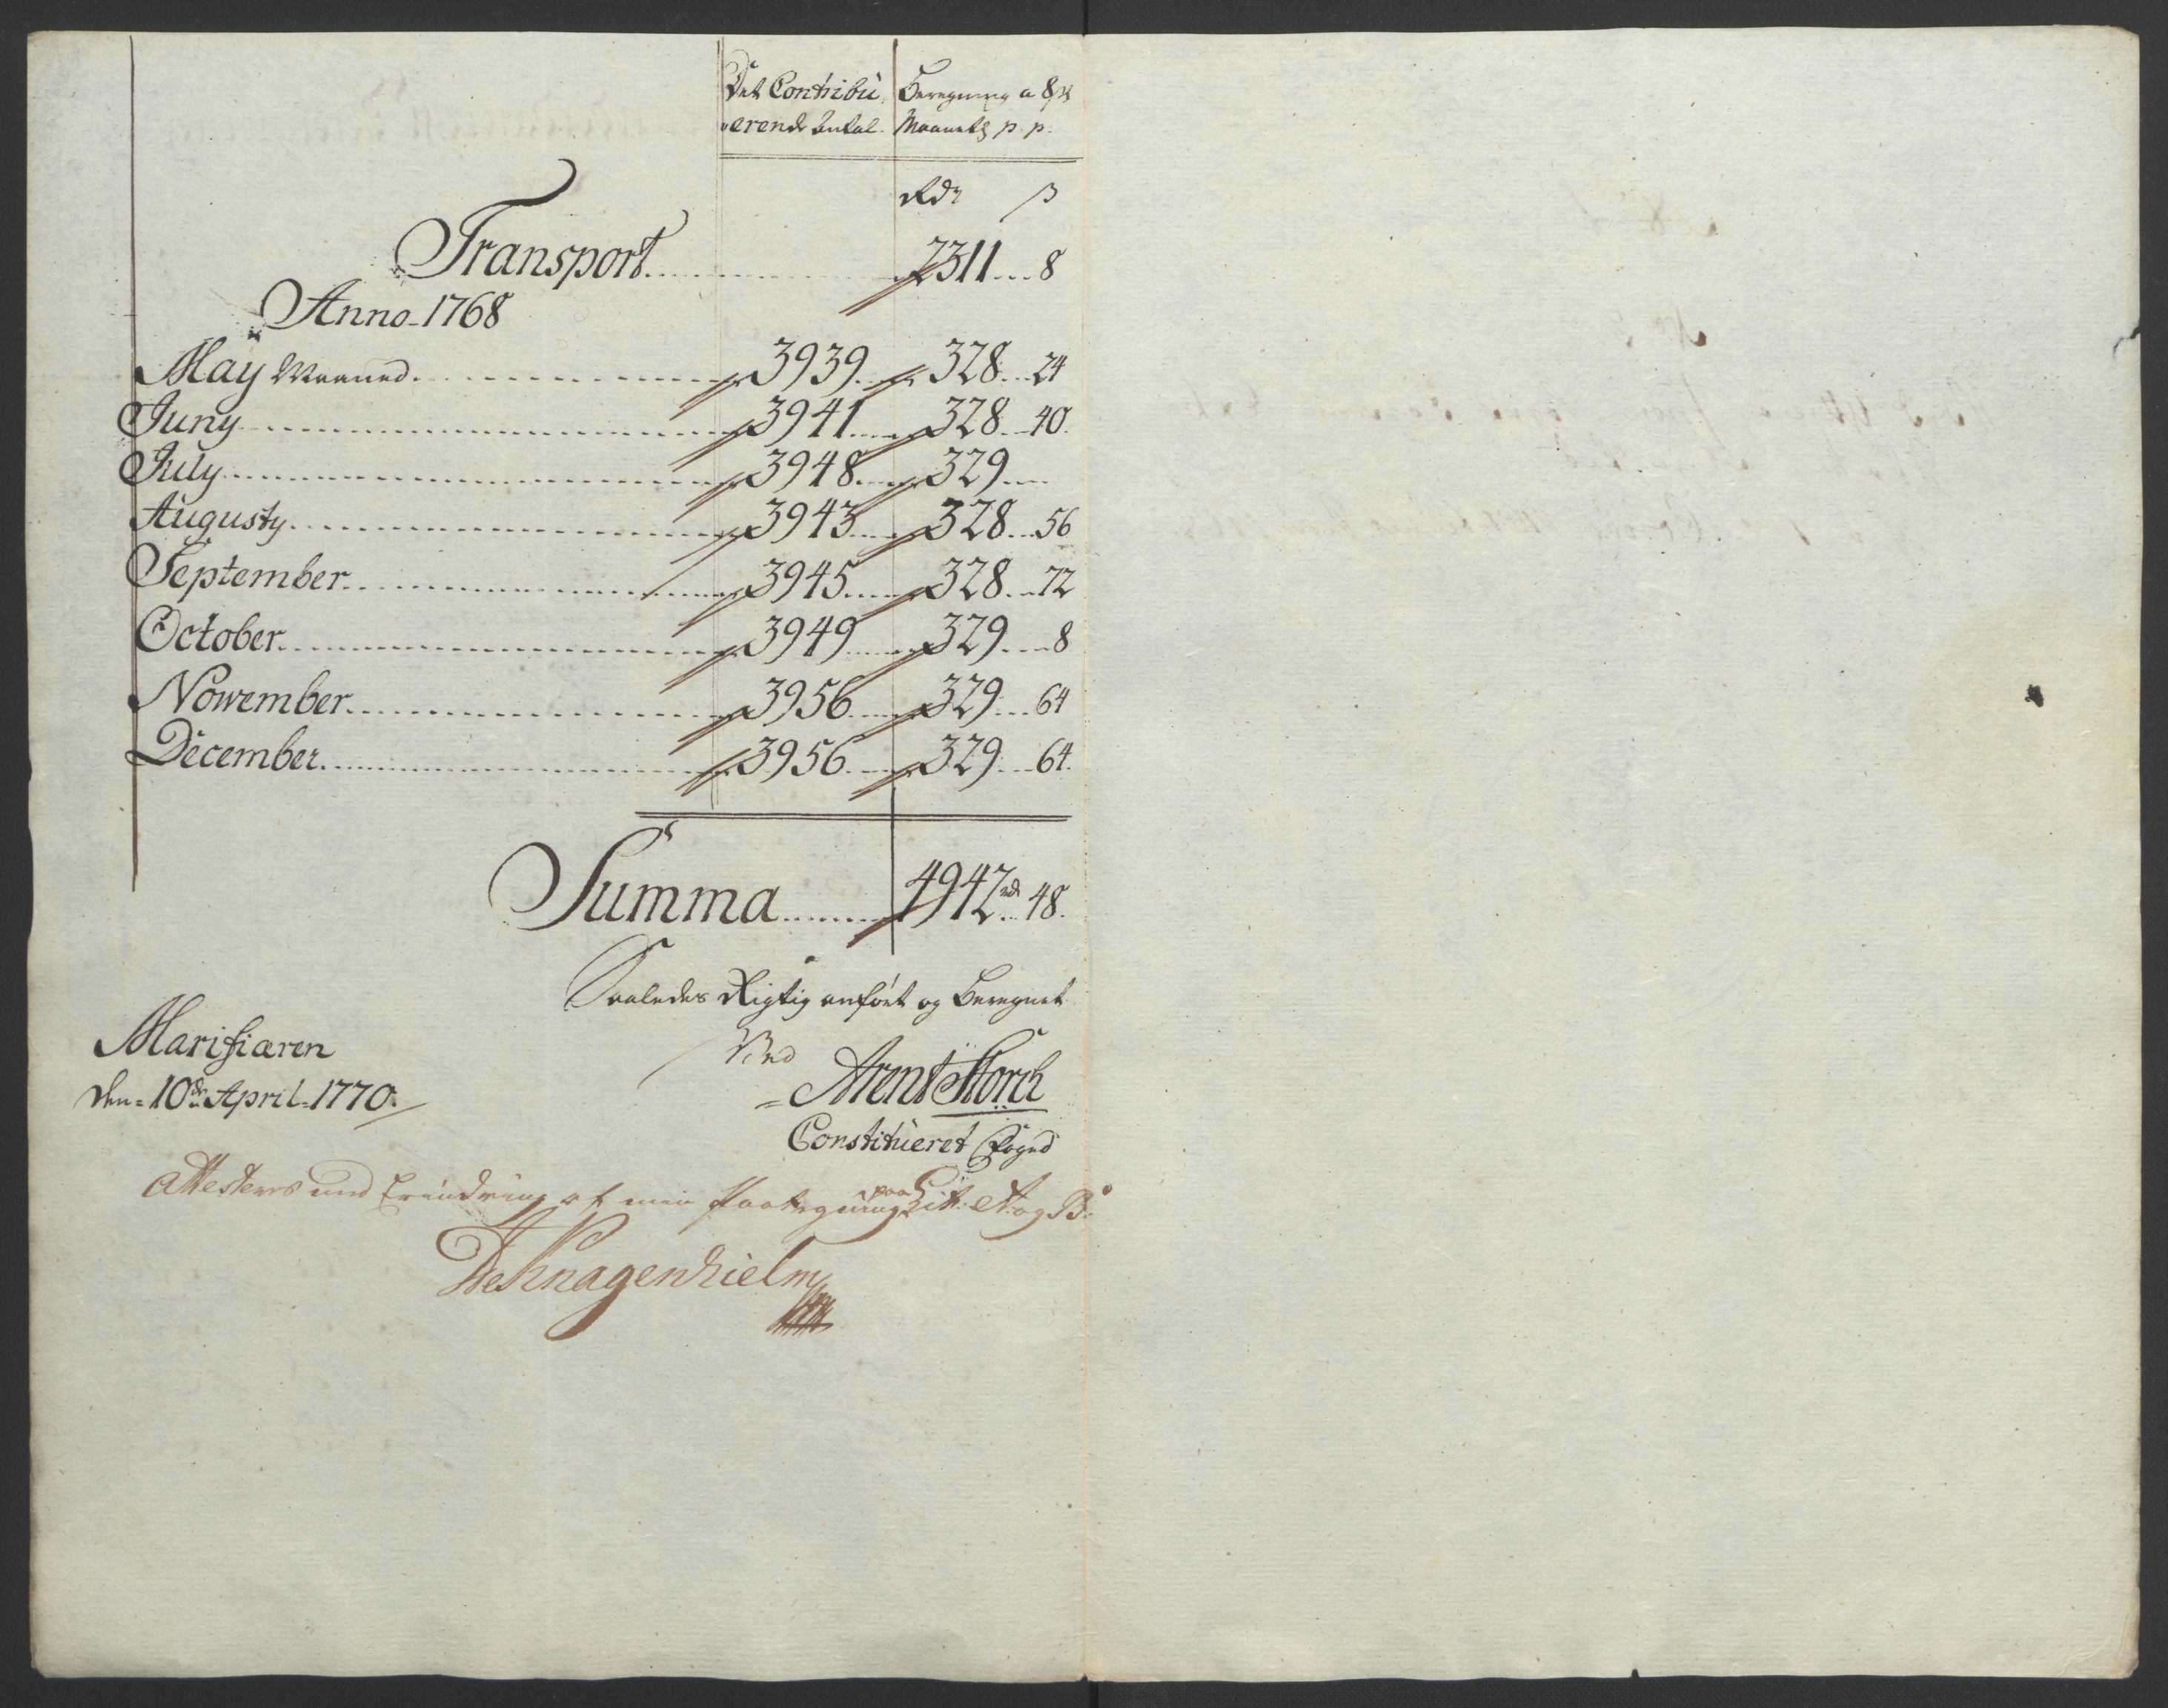 Det Contribu, Beregning a 8 s
erende Antal. Maanetl p. p.
Rdr s
Transport 2311 8
Anno 1768
May Maaned 3939 328 24
Juny 3941 328 40
July 3948 329
Augusty 3943 328 56
September 3945 328 72
October 3949 329 8
Nowember 3956 329 64
December 3956 329 64
Summa 4942 rd 48
Saaledes Rigtig anført og Beregnet
Marifiæren Ved
den 10de April 1770. Arent Storch
Constitueret Foged
Attesteres med Erindring af min Paategning paa Lit: A: og B:
De Knagenhielm